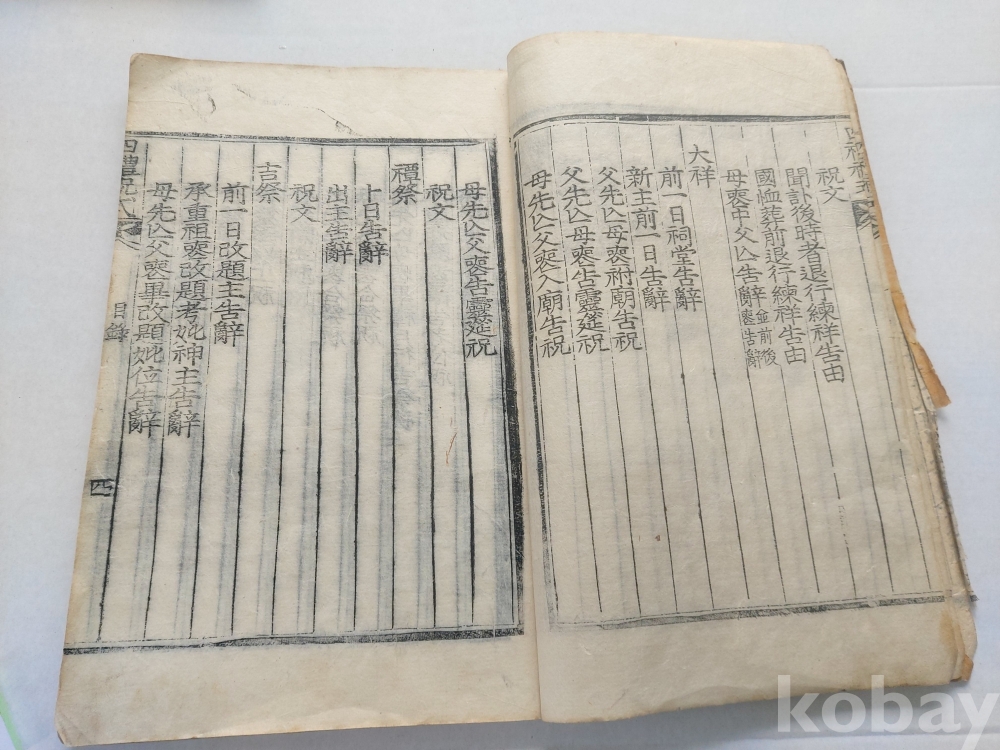 祝文
聞訃後時者退行練祥告由
國恤葬前退行練祥告由
母喪中父亾告辭並前後喪告辭
大祥
前一日祠堂告辭
新主前一日告辭
父先亾母喪祔廟告祝
父先亾母喪告靈筵祝
母先亾父喪入廟告祝
母先亾父喪告靈筵祝
祝文
禫祭
卜日告辭
出主告辭
祝文
吉祭
前一日改題主告辭
承重祖喪改題考妣神主告辭
母先亾父喪畢改題妣位告辭
四禮祝式
目錄
四
kobay